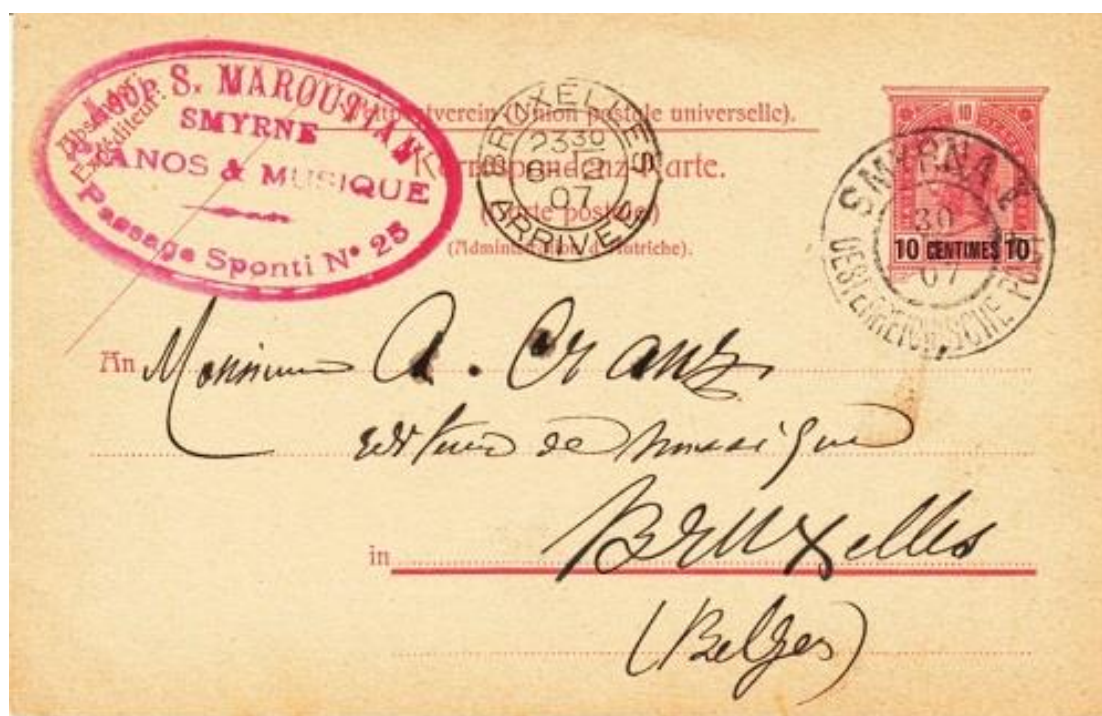 S. MAROUTIAN
SMYRNE
PIANOS & MUSIQUE
Passage Sponti Nº 25
Absender:
Expéditeur:
Weltpostverein (Union postale universelle).
Korrespondenz-Karte.
(Carte postale)
(Administration d'Autriche).
BRUXELLES
23 30
6-12
07
ARRIVEE
10
10 CENTIMES 10
SMYRNA
30
07
OESTERREICHISCHE POST
An Monsieur A. Cranz
editeur de musique
in Bruxelles
(Belges)